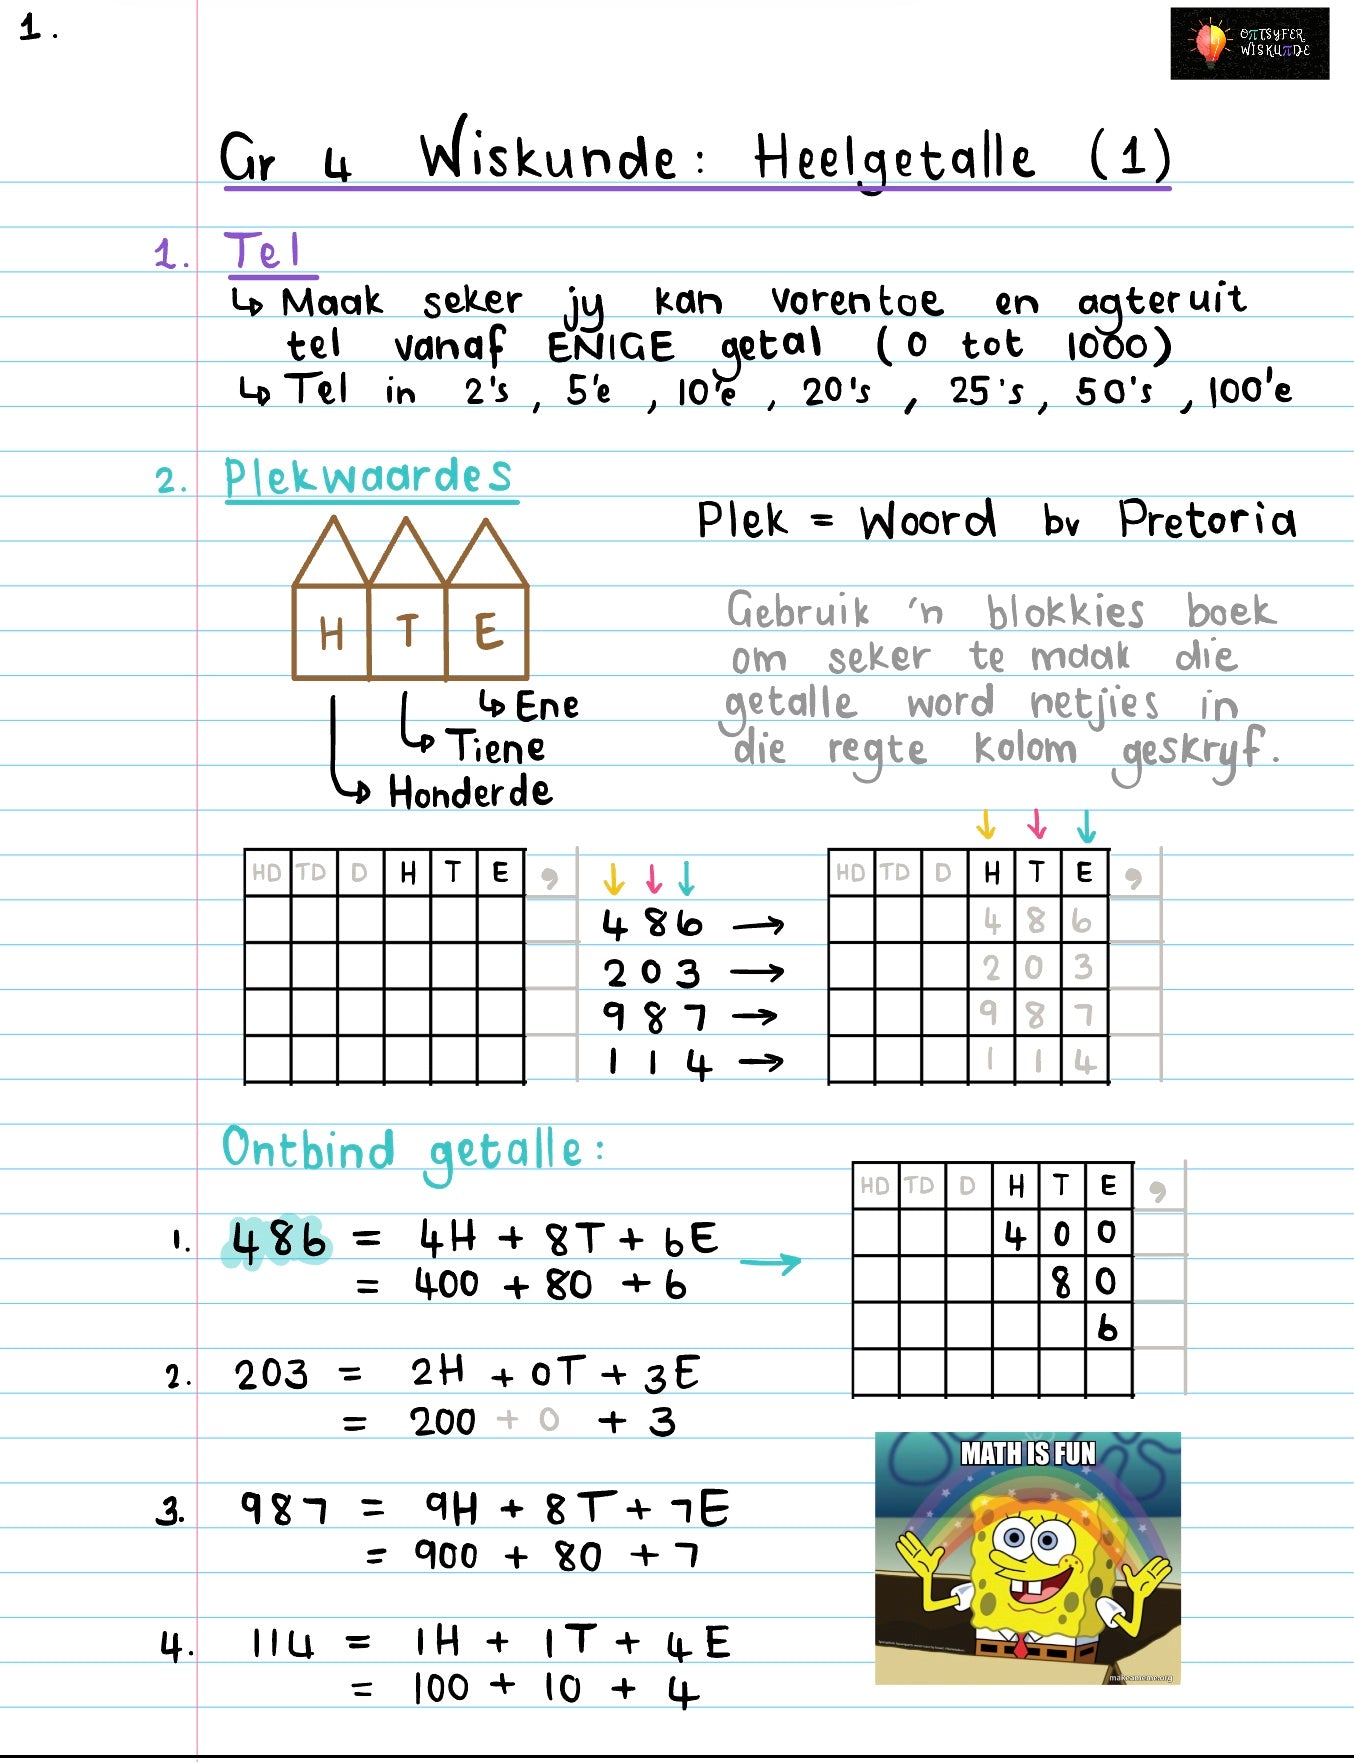 1.
OπTSYFER
WISKUπDE
Gr 4 Wiskunde: Heelgetalle (1)
1. Tel
↳ Maak seker jy kan vorentoe en agteruit
tel vanaf ENIGE getal (0 tot 1000)
↳ Tel in 2's, 5'e, 10'e, 20's, 25's, 50's, 100'e
2. Plekwaardes
Plek = Woord bv Pretoria
H T E
↳ Ene
↳ Tiene
↳ Honderde
Gebruik 'n blokkies boek
om seker te maak die
getalle word netjies in
die regte kolom geskryf.
HD TD D H T E ,
↓ ↓ ↓
486 →
203 →
987 →
114 →
↓ ↓ ↓
HD TD D H T E ,
4 8 6
2 0 3
9 8 7
1 1 4
Ontbind getalle:
1. 486 = 4H + 8T + 6E →
= 400 + 80 + 6
HD TD D H T E ,
4 0 0
8 0
6
2. 203 = 2H + 0T + 3E
= 200 + 0 + 3
3. 987 = 9H + 8T + 7E
= 900 + 80 + 7
4. 114 = 1H + 1T + 4E
= 100 + 10 + 4
MATH IS FUN
makeameme.org